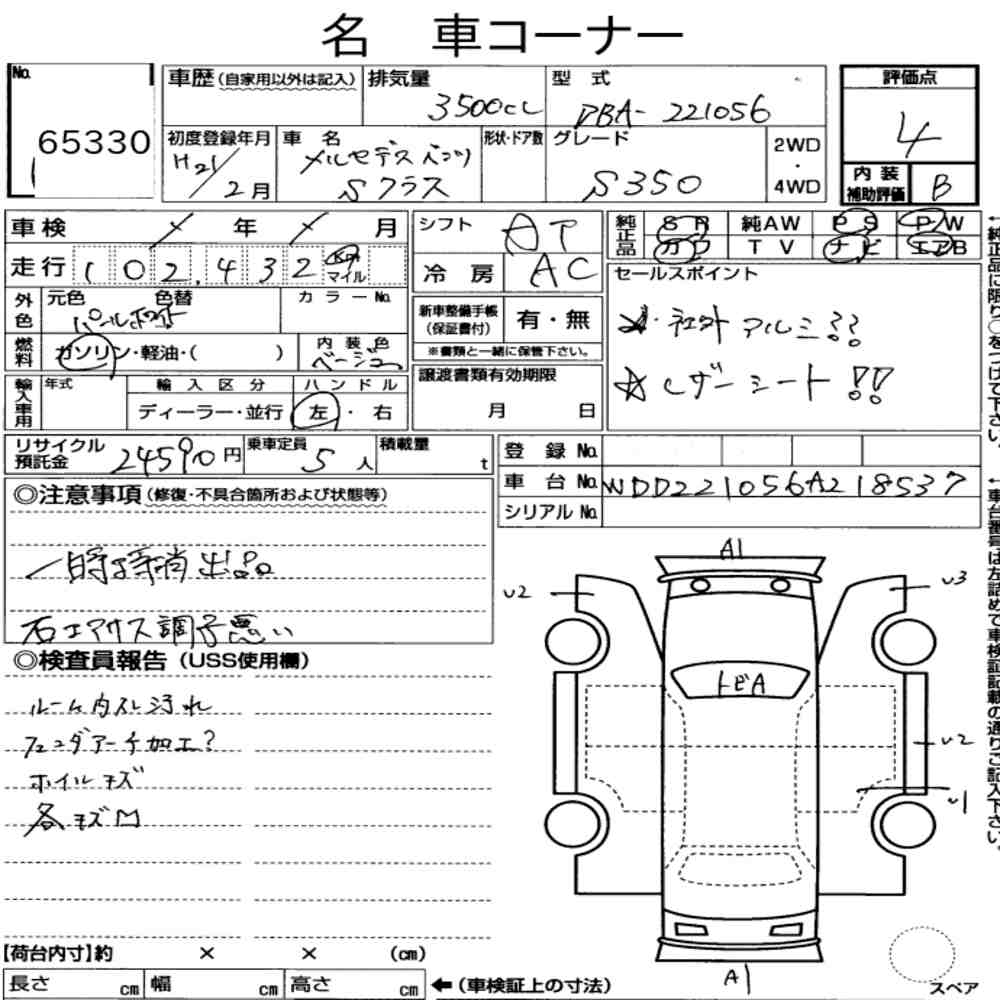 名 車コーナー
No. 65330
車歴(自家用以外は記入)
排気量 3500cc
型式 DBA-221056
評価点 4
初度登録年月 H21/2月
車名 メルセデスベンツ Sクラス
形状・ドア数
グレード S350
2WD・4WD
内装補助評価 B
車検 / 年 / 月
シフト AT
純正品 SR 純AW PS PW
カワ TV ナビ エアB
走行 102,432 Km マイル
冷房 AC
セールスポイント
外色 元色 色替 パールホワイト
カラーNo.
新車整備手帳(保証書付) 有・無
※書類と一緒に保管下さい。
☆・社外アルミ??
燃料 ガソリン・軽油・( )
内装色 ベージュ
☆レザーシート!!
譲渡書類有効期限
月 日
輸入車用 年式
輸入区分 ディーラー・並行
ハンドル 左・右
←純正品に限り○をつけて下さい。
リサイクル預託金 24590円
乗車定員 5人
積載量 t
登録No.
車台No. WDD221056A218537
シリアルNo.
←車台番号は左詰めで車検証記載の通りご記入下さい。
◎注意事項(修復・不具合箇所および状態等)
一時抹消出品
右エアサス調子悪い
◎検査員報告(USS使用欄)
ルーム内スレ汚れ
フェンダアーチ加工?
ホイルキズ
各キズ凹
A1
U2
U3
トビA
U2
U1
A1
【荷台内寸】約 × × (cm)
長さ cm 幅 cm 高さ cm ←(車検証上の寸法)
スペア